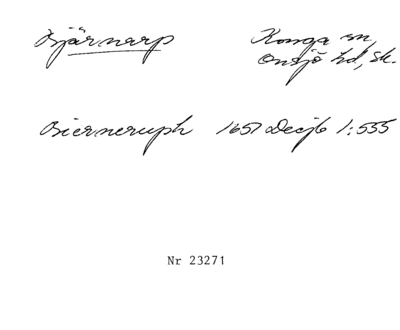 Bjärnarp
Konga sn,
Onsjö hd, Sk.
Bierneruph 1657 Decjb 1:555
Nr 23271